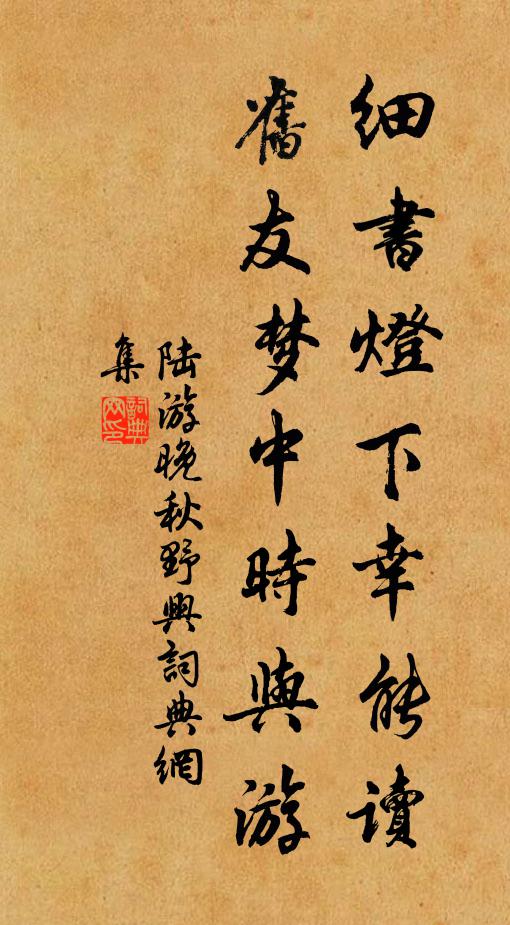 細書燈下幸能讀
舊友梦中時與游
陆游晚秋野興詞典網
集
詞典
网印